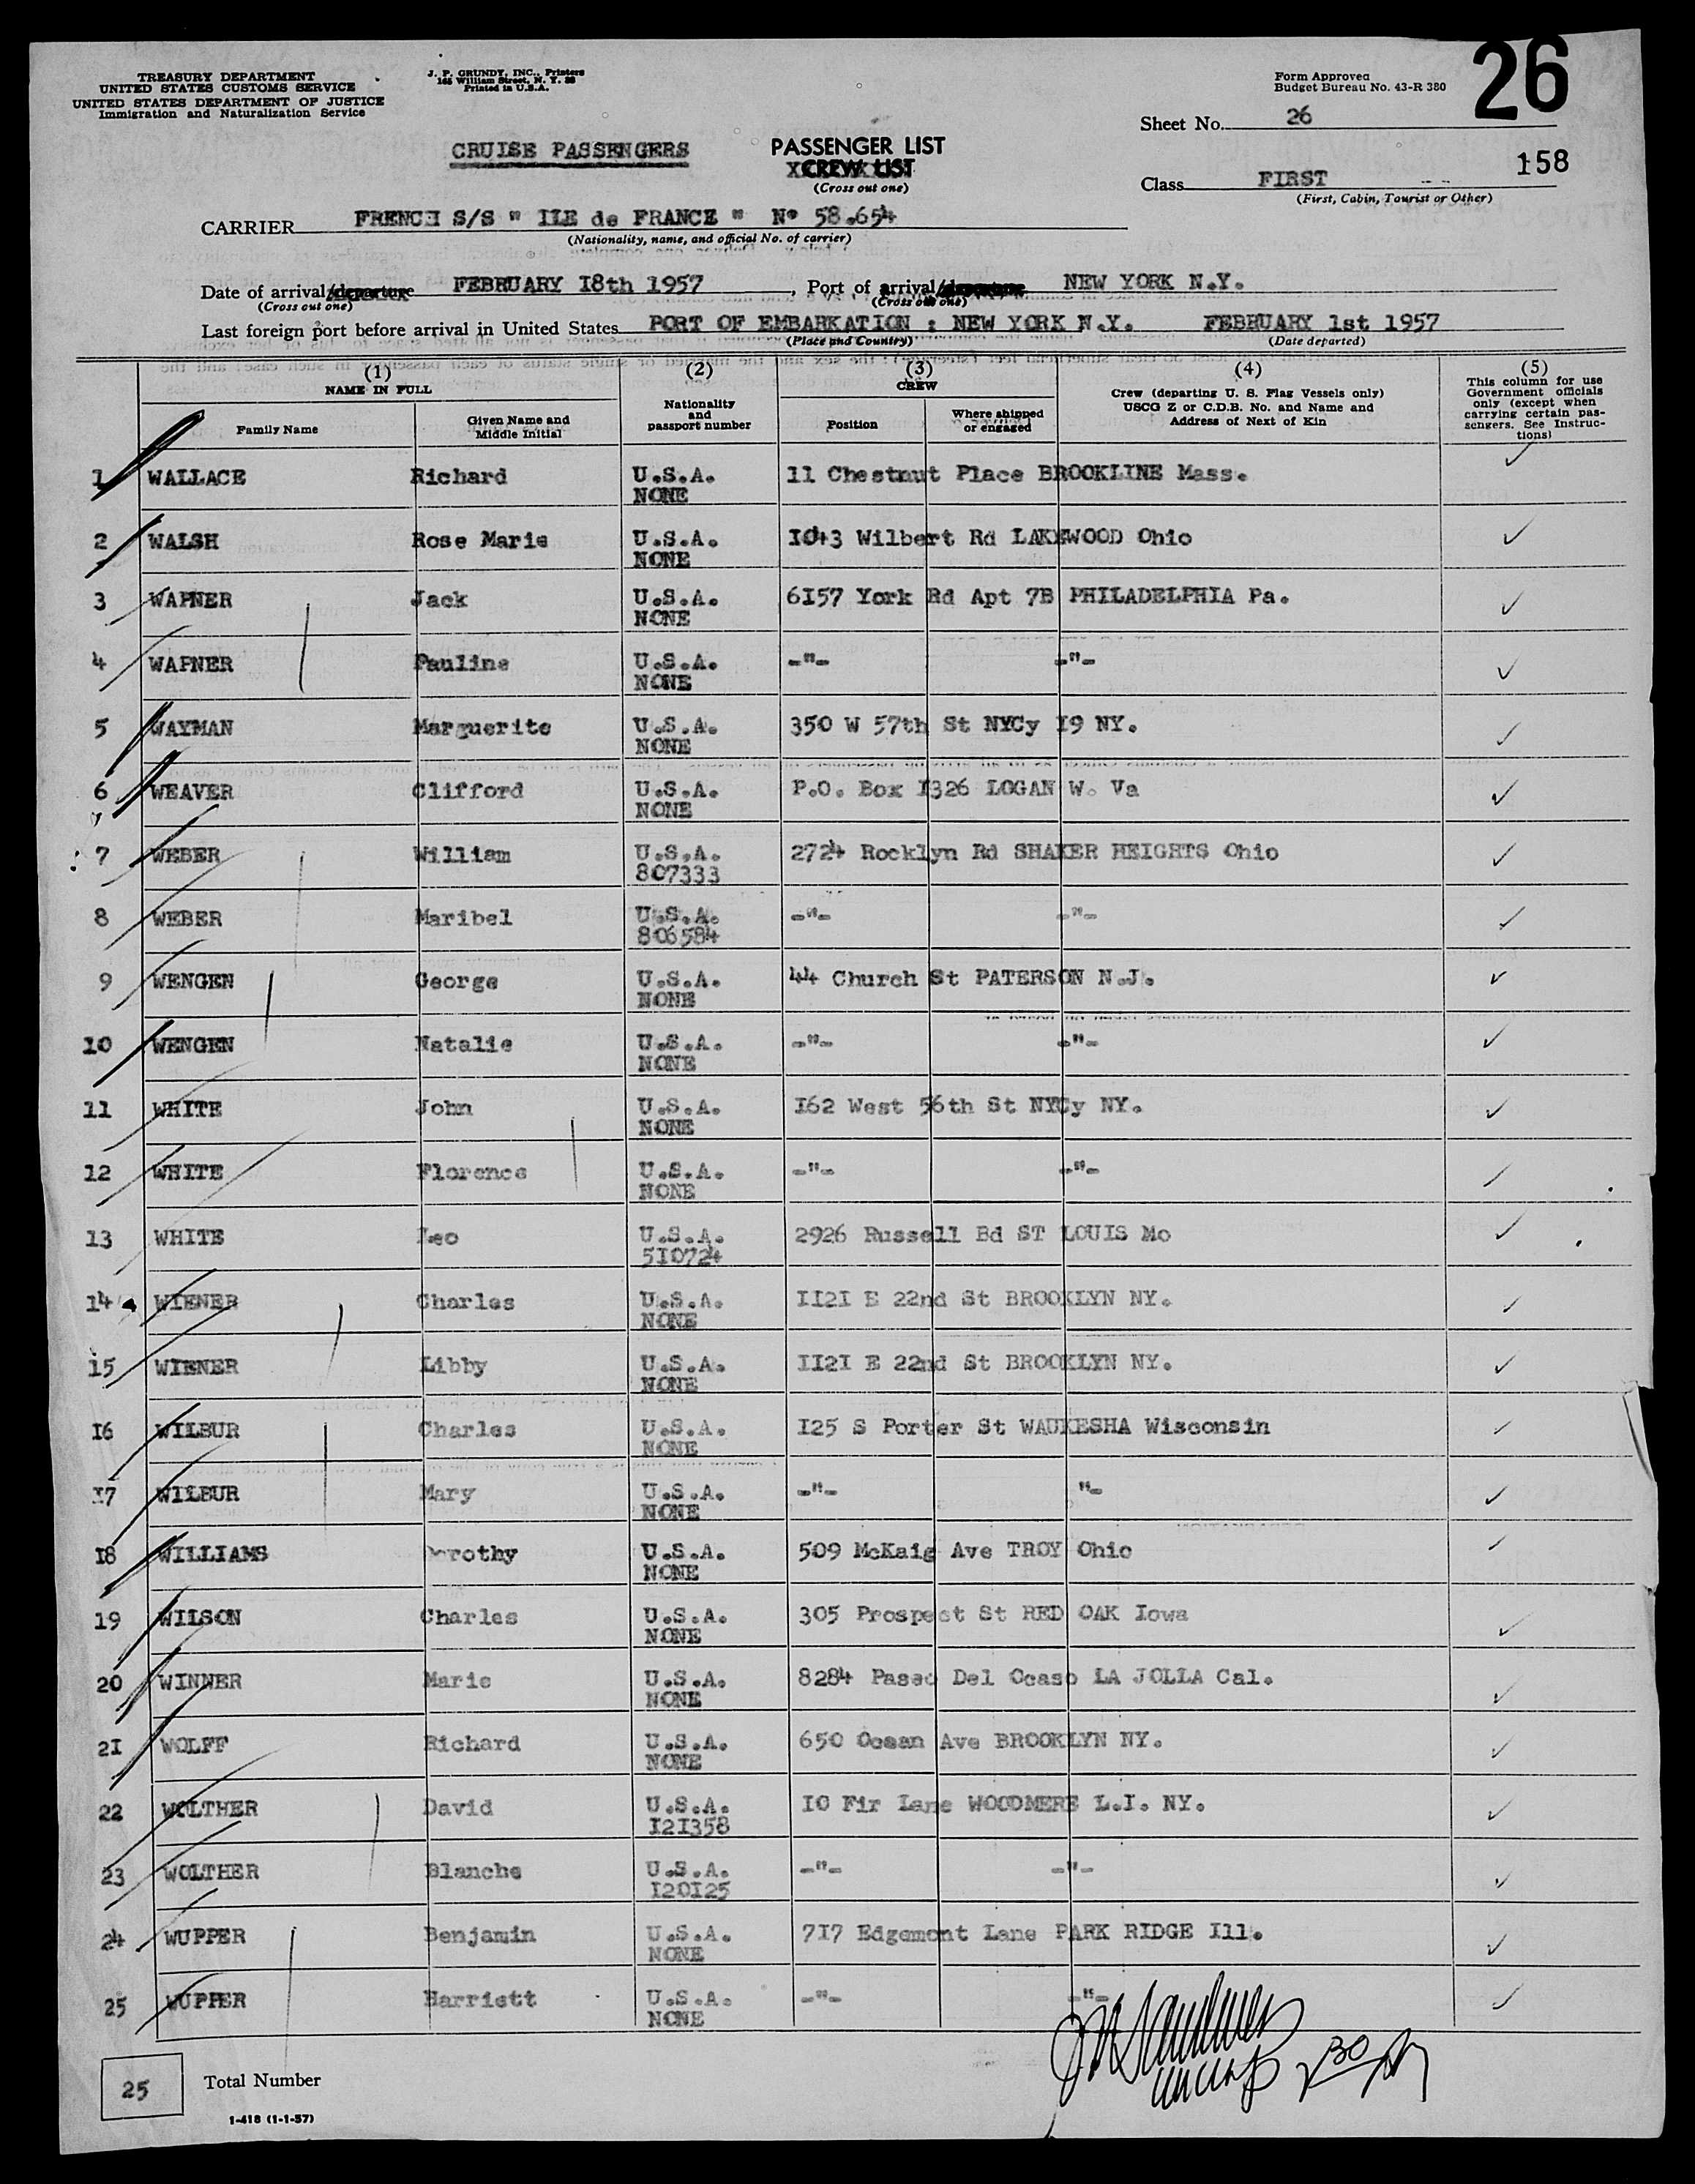 TREASURY DEPARTMENT
UNITED STATES CUSTOMS SERVICE
UNITED STATES DEPARTMENT OF JUSTICE
Immigration and Naturalization Service
J. P. GRUNDY, INC., Printers
165 William Street, N. Y. 38
Printed in U.S.A.
Form Approved
Budget Bureau No. 43-R 380
26
Sheet No. 26
CRUISE PASSENGERS
PASSENGER LIST
CREW LIST
(Cross out one)
158
Class FIRST
(First, Cabin, Tourist or Other)
CARRIER FRENCH S/S " ILE de FRANCE " N° 58.654
(Nationality, name, and official No. of carrier)
Date of arrival/departure FEBRUARY I8th 1957, Port of arrival/departure NEW YORK N.Y.
(Cross out one) (Cross out one)
Last foreign port before arrival in United States PORT OF EMBARKATION : NEW YORK N.Y. FEBRUARY 1st 1957
(Place and Country) (Date departed)
(1) NAME IN FULL
Family Name
Given Name and Middle Initial
(2) Nationality and passport number
(3) CREW
Position
Where shipped or engaged
(4) Crew (departing U. S. Flag Vessels only) USCG Z or C.D.B. No. and Name and Address of Next of Kin
(5) This column for use Government officials only (except when carrying certain passengers. See Instructions)
1 WALLACE Richard U.S.A. 11 Chestnut Place BROOKLINE Mass.
NONE
2 WALSH Rose Marie U.S.A. I043 Wilbert Rd LAKEWOOD Ohio
NONE
3 WAPNER Jack U.S.A. 6I57 York Rd Apt 7B PHILADELPHIA Pa.
NONE
4 WAPNER Pauline U.S.A. -"- -"-
NONE
5 WAYMAN Marguerite U.S.A. 350 W 57th St NYCy I9 NY.
NONE
6 WEAVER Clifford U.S.A. P.O. Box I326 LOGAN W. Va
NONE
7 WEBER William U.S.A. 2724 Rocklyn Rd SHAKER HEIGHTS Ohio
807333
8 WEBER Maribel U.S.A. -"- -"-
806584
9 WENGEN George U.S.A. 44 Church St PATERSON N.J.
NONE
10 WENGEN Natalie U.S.A. -"- -"-
NONE
11 WHITE John U.S.A. I62 West 56th St NYCy NY.
NONE
12 WHITE Florence U.S.A. -"- -"-
NONE
13 WHITE Leo U.S.A. 2926 Russell Bd ST LOUIS Mo
5I0724
14 WIENER Charles U.S.A. II2I E 22nd St BROOKLYN NY.
NONE
15 WIENER Libby U.S.A. II2I E 22nd St BROOKLYN NY.
NONE
I6 WILBUR Charles U.S.A. I25 S Porter St WAUKESHA Wisconsin
NONE
I7 WILBUR Mary U.S.A. -"- "-
NONE
I8 WILLIAMS Dorothy U.S.A. 509 McKaig Ave TROY Ohio
NONE
19 WILSON Charles U.S.A. 305 Prospect St RED OAK Iowa
NONE
20 WINNER Marie U.S.A. 8284 Paseo Del Ocaso LA JOLLA Cal.
NONE
2I WOLFF Richard U.S.A. 650 Ocean Ave BROOKLYN NY.
NONE
22 WOLTHER David U.S.A. I0 Fir Lane WOODMERE L.I. NY.
I2I358
23 WOLTHER Blanche U.S.A. -"- -"-
I20I25
24 WUPPER Benjamin U.S.A. 7I7 Edgemont Lane PARK RIDGE Ill.
NONE
25 WUPPER Harriett U.S.A. -"- -"-
NONE
25 Total Number
1-418 (1-1-57)